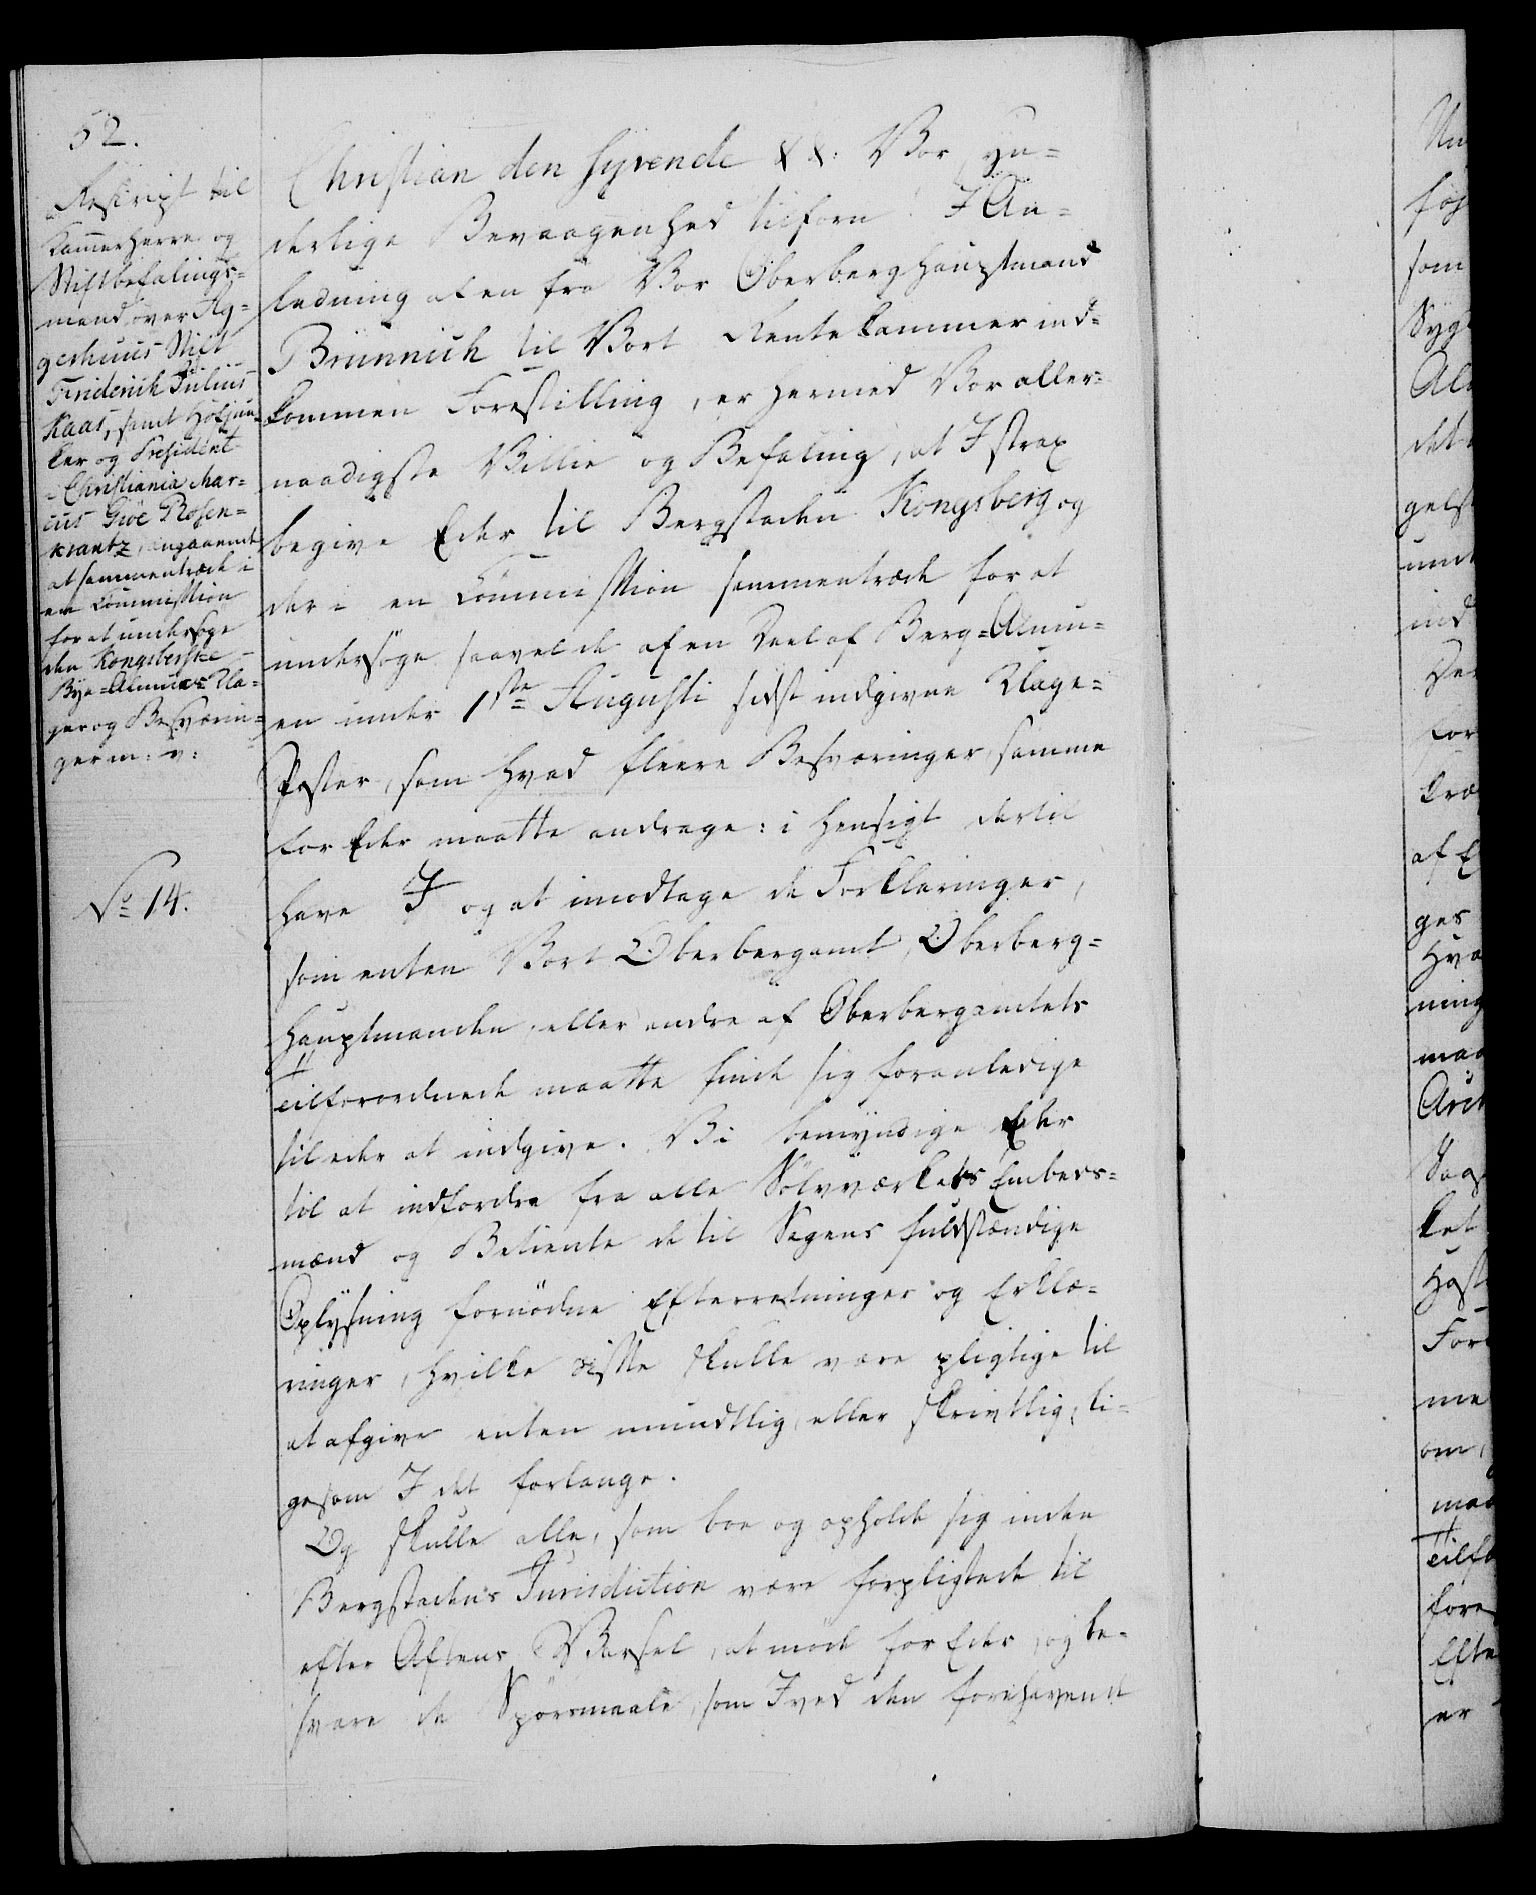 52.
Reskript til
Kammerherre og
Stiftbefalings=
mand over Ag=
gerhuus Stift
Friderich Julius
Kaas, samt Hofjun=
ker og President
i Christiania Mar=
cus Giöe Rosen=
krantz, angaaende
at sammentræde i
en Commission
for at undersøge
den Kongsbergske
Bye=Almues Kla=
ger og Besværin=
ger m: v:
No 14.
Christian den Syvende &&: Vor yn=
derlige Bevaagenhed tilforn. I An=
ledning af en fra Vor Oberberghauptmand
Brünnich til Vort Rentekammer ind=
kommen Forestilling, er hermed Vor aller=
naadigste Villie og Befaling, at I strax
begive Eder til Bergstaden Kongsberg og
der i en Commission sammentræde for at
undersöge saavel de af en Deel af Berg=Almu=
en under 1ste Augusti sidst indgivne Klage=
Poster, som hvad fleere Besværinger, samme
for Eder maatte andrage: i Hensigt dertil
have I og at imodtage de Forklaringer,
som enten Vort Oberbergamt, Oberberg=
hauptmanden, eller andre af Oberbergamtets
Tilforordnede maatte finde sig foranledige
til eder at indgive. Vi bemyndige Eder
til at indfordre fra alle Sölvværkets Embeds=
mænd og Betiente de til Sagens fuldstændige
Oplysning fornödne Efterretninger og Erklæ=
ringer, hvilke disse skulle være pligtige til
at afgive enten mundtlig, eller skrivtlig, li=
gesom I det forlange.
Og skulle alle, som boe og opholde sig inden
Bergstadens Jurisdiction være forpligtede til
efter Aftens Varsel, at möde for Eder, og be=
svare de Spörsmaale, som I ved den forehavende